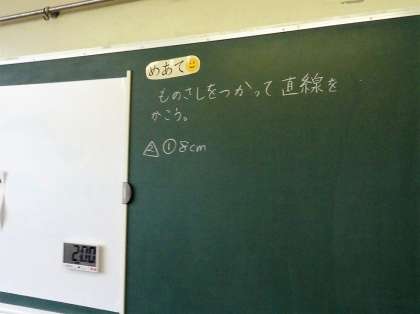 めあて
ものさしをつかって直線を
かこう。
△2 ①8cm
2:00